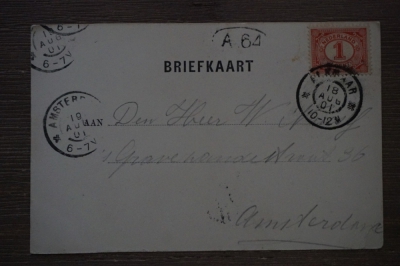 19
AUG
01
6-7V
A 64
NEDERLAND
1
BRIEFKAART
ALKMAAR
18
AUG
01
10-12N
AMSTERD
19
AUG
01
6-7V
AAN
Den Heer W.
's Gravesandestraat 36
Amsterdam